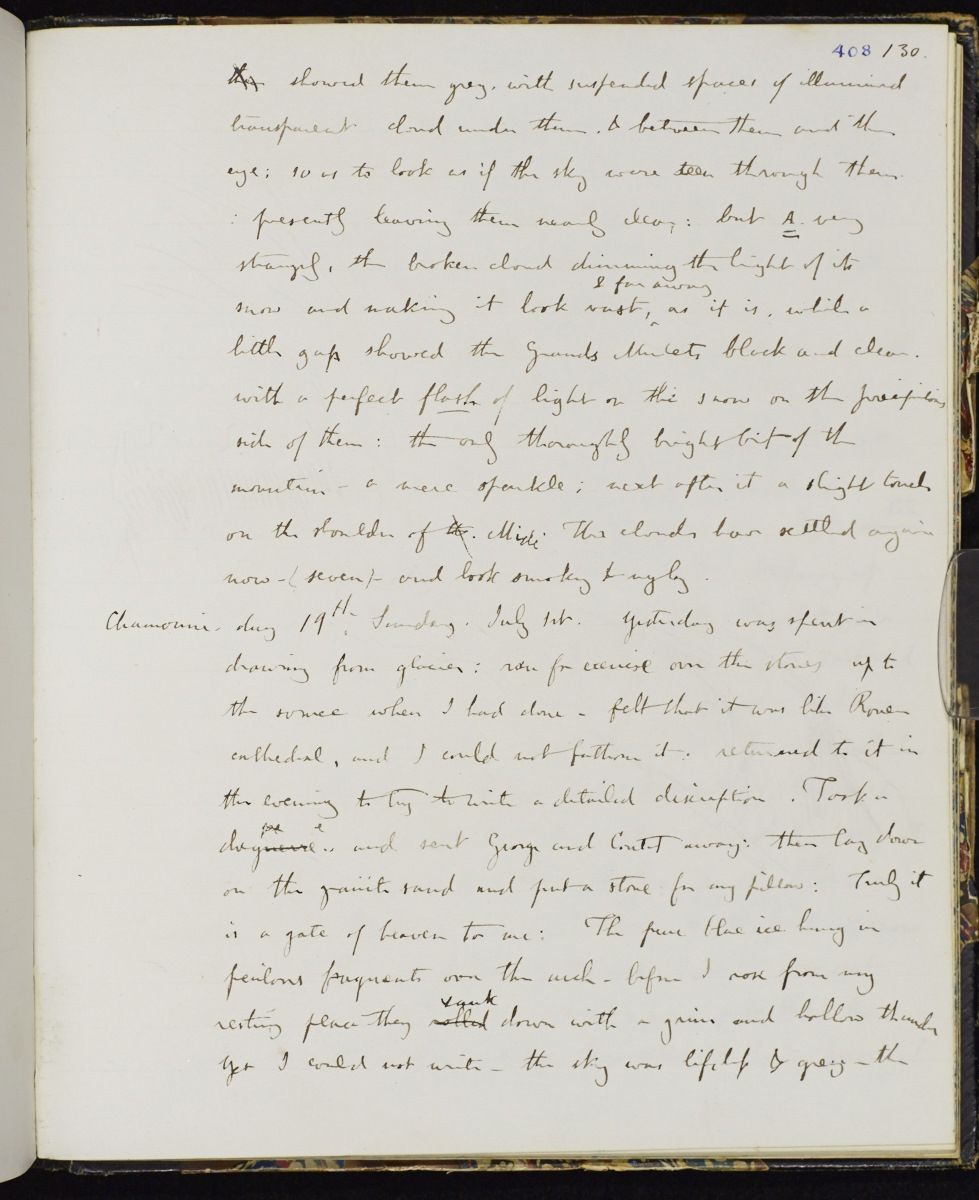 408 130.
they showed them grey, with suspended spaces of illumined
transparent cloud under them, & between them and the
eye; so as to look as if the sky were seen through them
: presently leaving them nearly clear: but A. very
strangely, the broken cloud dimming the light of its
& far away
snow and making it look vast, as it is, while a
little gap showed the Grands Mulets black and clear.
with a perfect flash of light on the snow on the precipitous
side of them: the only thoroughly bright bit of the
mountain - a mere sparkle; next after it a slight touch
on the shoulder of the. Midi. The clouds have settled again
now - (seven) - and look smoky & ugly.
Chamouni. day 19th. Sunday. July 1st. Yesterday was spent in
drawing from glacier: ran for exercise over the stones up to
the source when I had done - felt that it was like Rouen
cathedral, and I could not fathom it: returned to it in
the evening to try to write a detailed description. Took a
and sent George and Coutet away: then lay down
on the granite sand and put a stone for my pillow: Truly it
is a gate of heaven to me: The pure blue ice hung in
perilous fragments over the arch - before I rose from my
sank
resting place they rolled down with a grim and hollow thunder
Yet I could not write - the sky was lifeless & grey - the